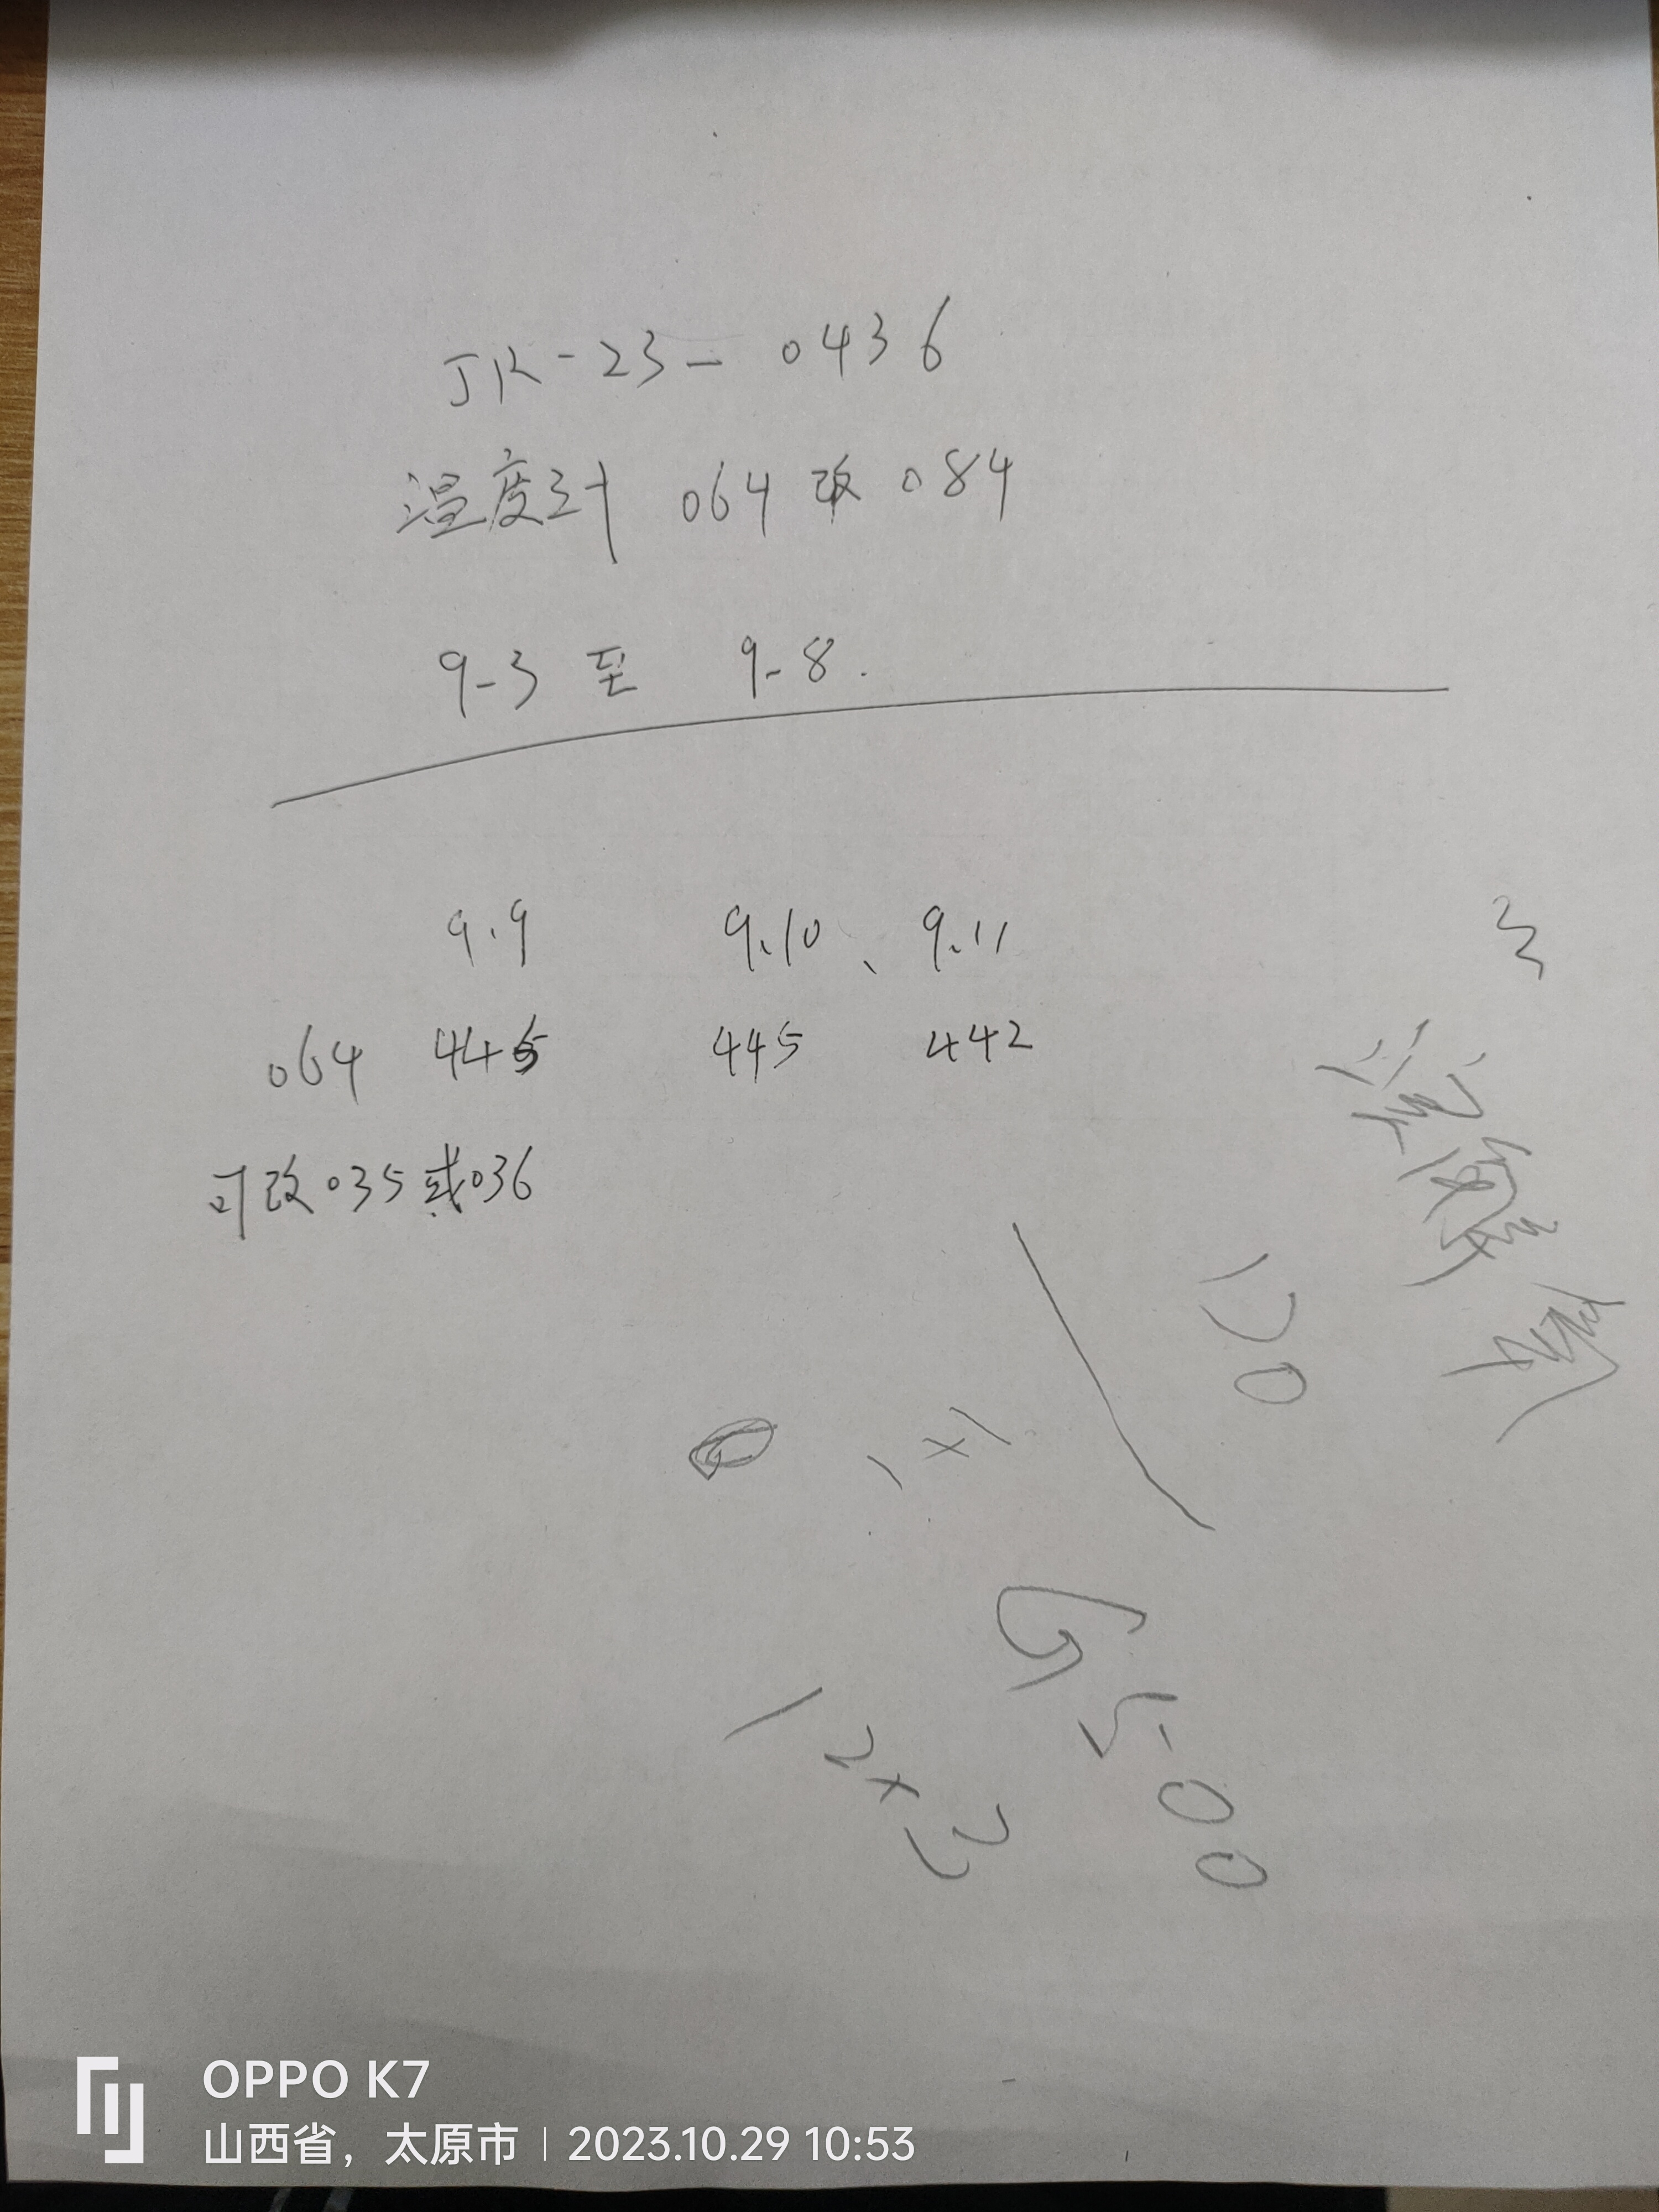 JK-23-0436
温度计 064 改 084
9-3 至 9-8.
9.9 9.10、9.11
064 445 445 442
可改035或036
120
1×1
G500
12×3
OPPO K7
山西省，太原市 | 2023.10.29 10:53